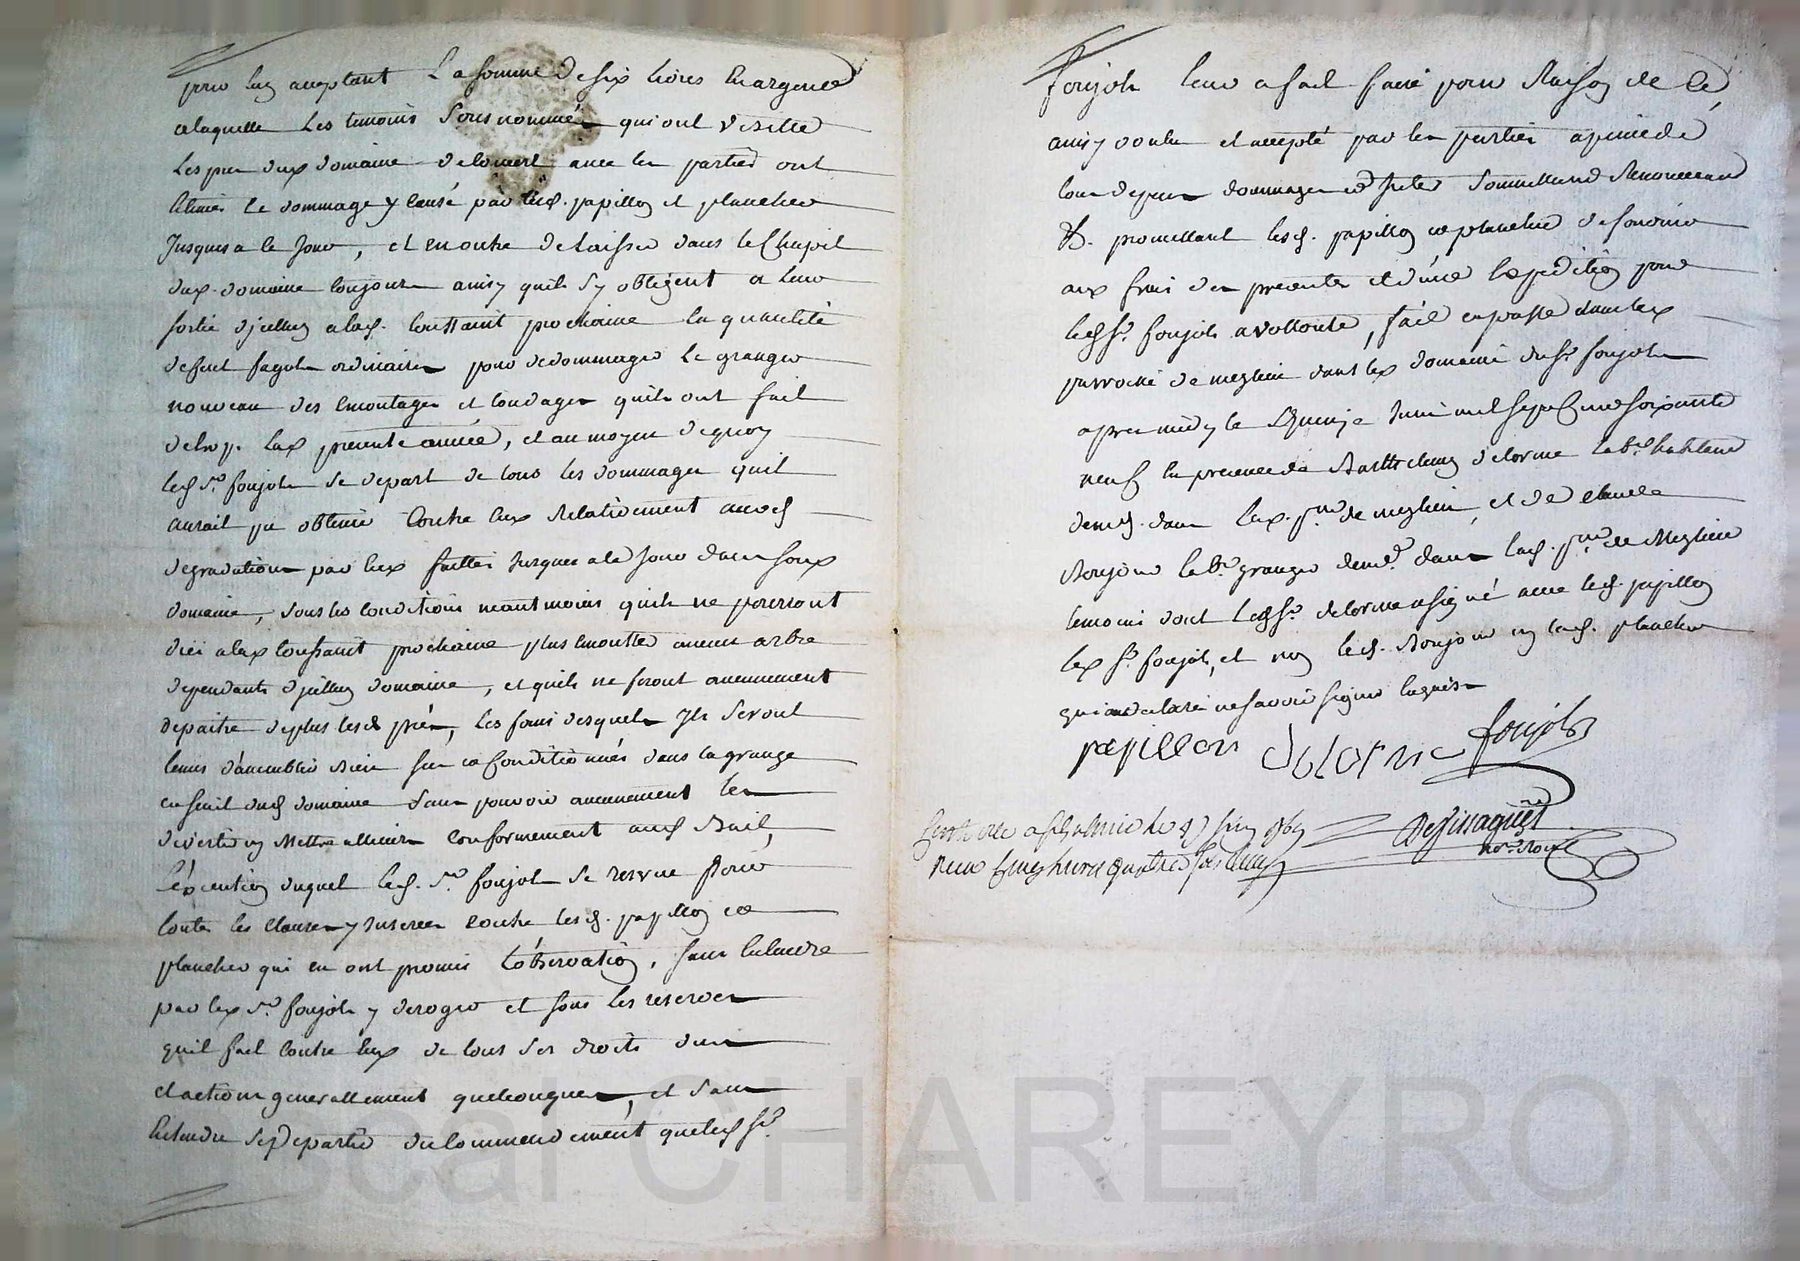 pour luy acceptant La somme de six livres en argent
a laquelle Les temoins Sousnommés qui ont visitté
Les prés dud. domaine avec les parties ont
le dommage y causé par lesd. papillon et plancher
Jusques a ce Jour, et en outre de laisser dans le
dud. domaine toujours ainsy quils S'y obligent a leur
sortie d'jcelluy a lad. toussaint prochaine la quantité
de fagots ordinaires pour dedommager Le granger
nouveau des emontages et quils ont fait
la presente année, et au moyen de quoy
led. Sr. foujols se depart de tous les dommages quil
aurait pu obtenir Contre eux Relativement auxd.
degradations par eux faittes Jusques a ce Jour dans son
domaine, sous les conditions neantmoins quils ne pourront
d'ici a la toussaint prochaine plus emontter aucun arbre
dependants d'jcelluy domaine, et quils ne feront aucunement
depaitre deplus lesd. prés, Les foins desquels Ils seront
tenus d'ammeublir bien sec et conditionnés dans la grange
dud. domaine sans pouvoir aucunement les
divertir ny Mettre allieurs conformement aud. Bail,
l'execution duquel led. Sr. foujols se reserve pour
toutes les clauses y Inserees contre lesd. papillon et
plancher qui en ont promis L'observation, sans entendre
par led. Sr. foujols y deroger et sous les reserves
quil fait contre eux de tous ses droits
et actions generallement quelconques, et sans
entendre se departir du commandement que led. Sr.
foujols leur a fait faire pour Raison de ce
ainsy voulu et accepté par les parties a peine de
tous depens dommages et Interets Soumettant Renonceant
&. promettant lesd. papillon et plancher de fournir
aux frais des presentes et d'une Expedition pour
led. Sr. foujols a vollonté, fait et passé dans la
parroisse de dans le domaine du Sr. foujols
apres midy le Quinze Juin mil sept cent soixante
neuf En presence de Barthelemy delorme lab.r habitant
demt. dans la p.sse de et de claude
lab.r granger demt. dans lad. p.sse de
temoins dont led. Sr. delorme a signé avec led. papillon
led. Sr. foujols, et non led. ny led. plancher
qui ont declaré ne savoir signer Enquis
papillon delorme foujols
Controllé a le 17 Juin 1769
Reçu
nore. Royal
Pascal CHAREYRON